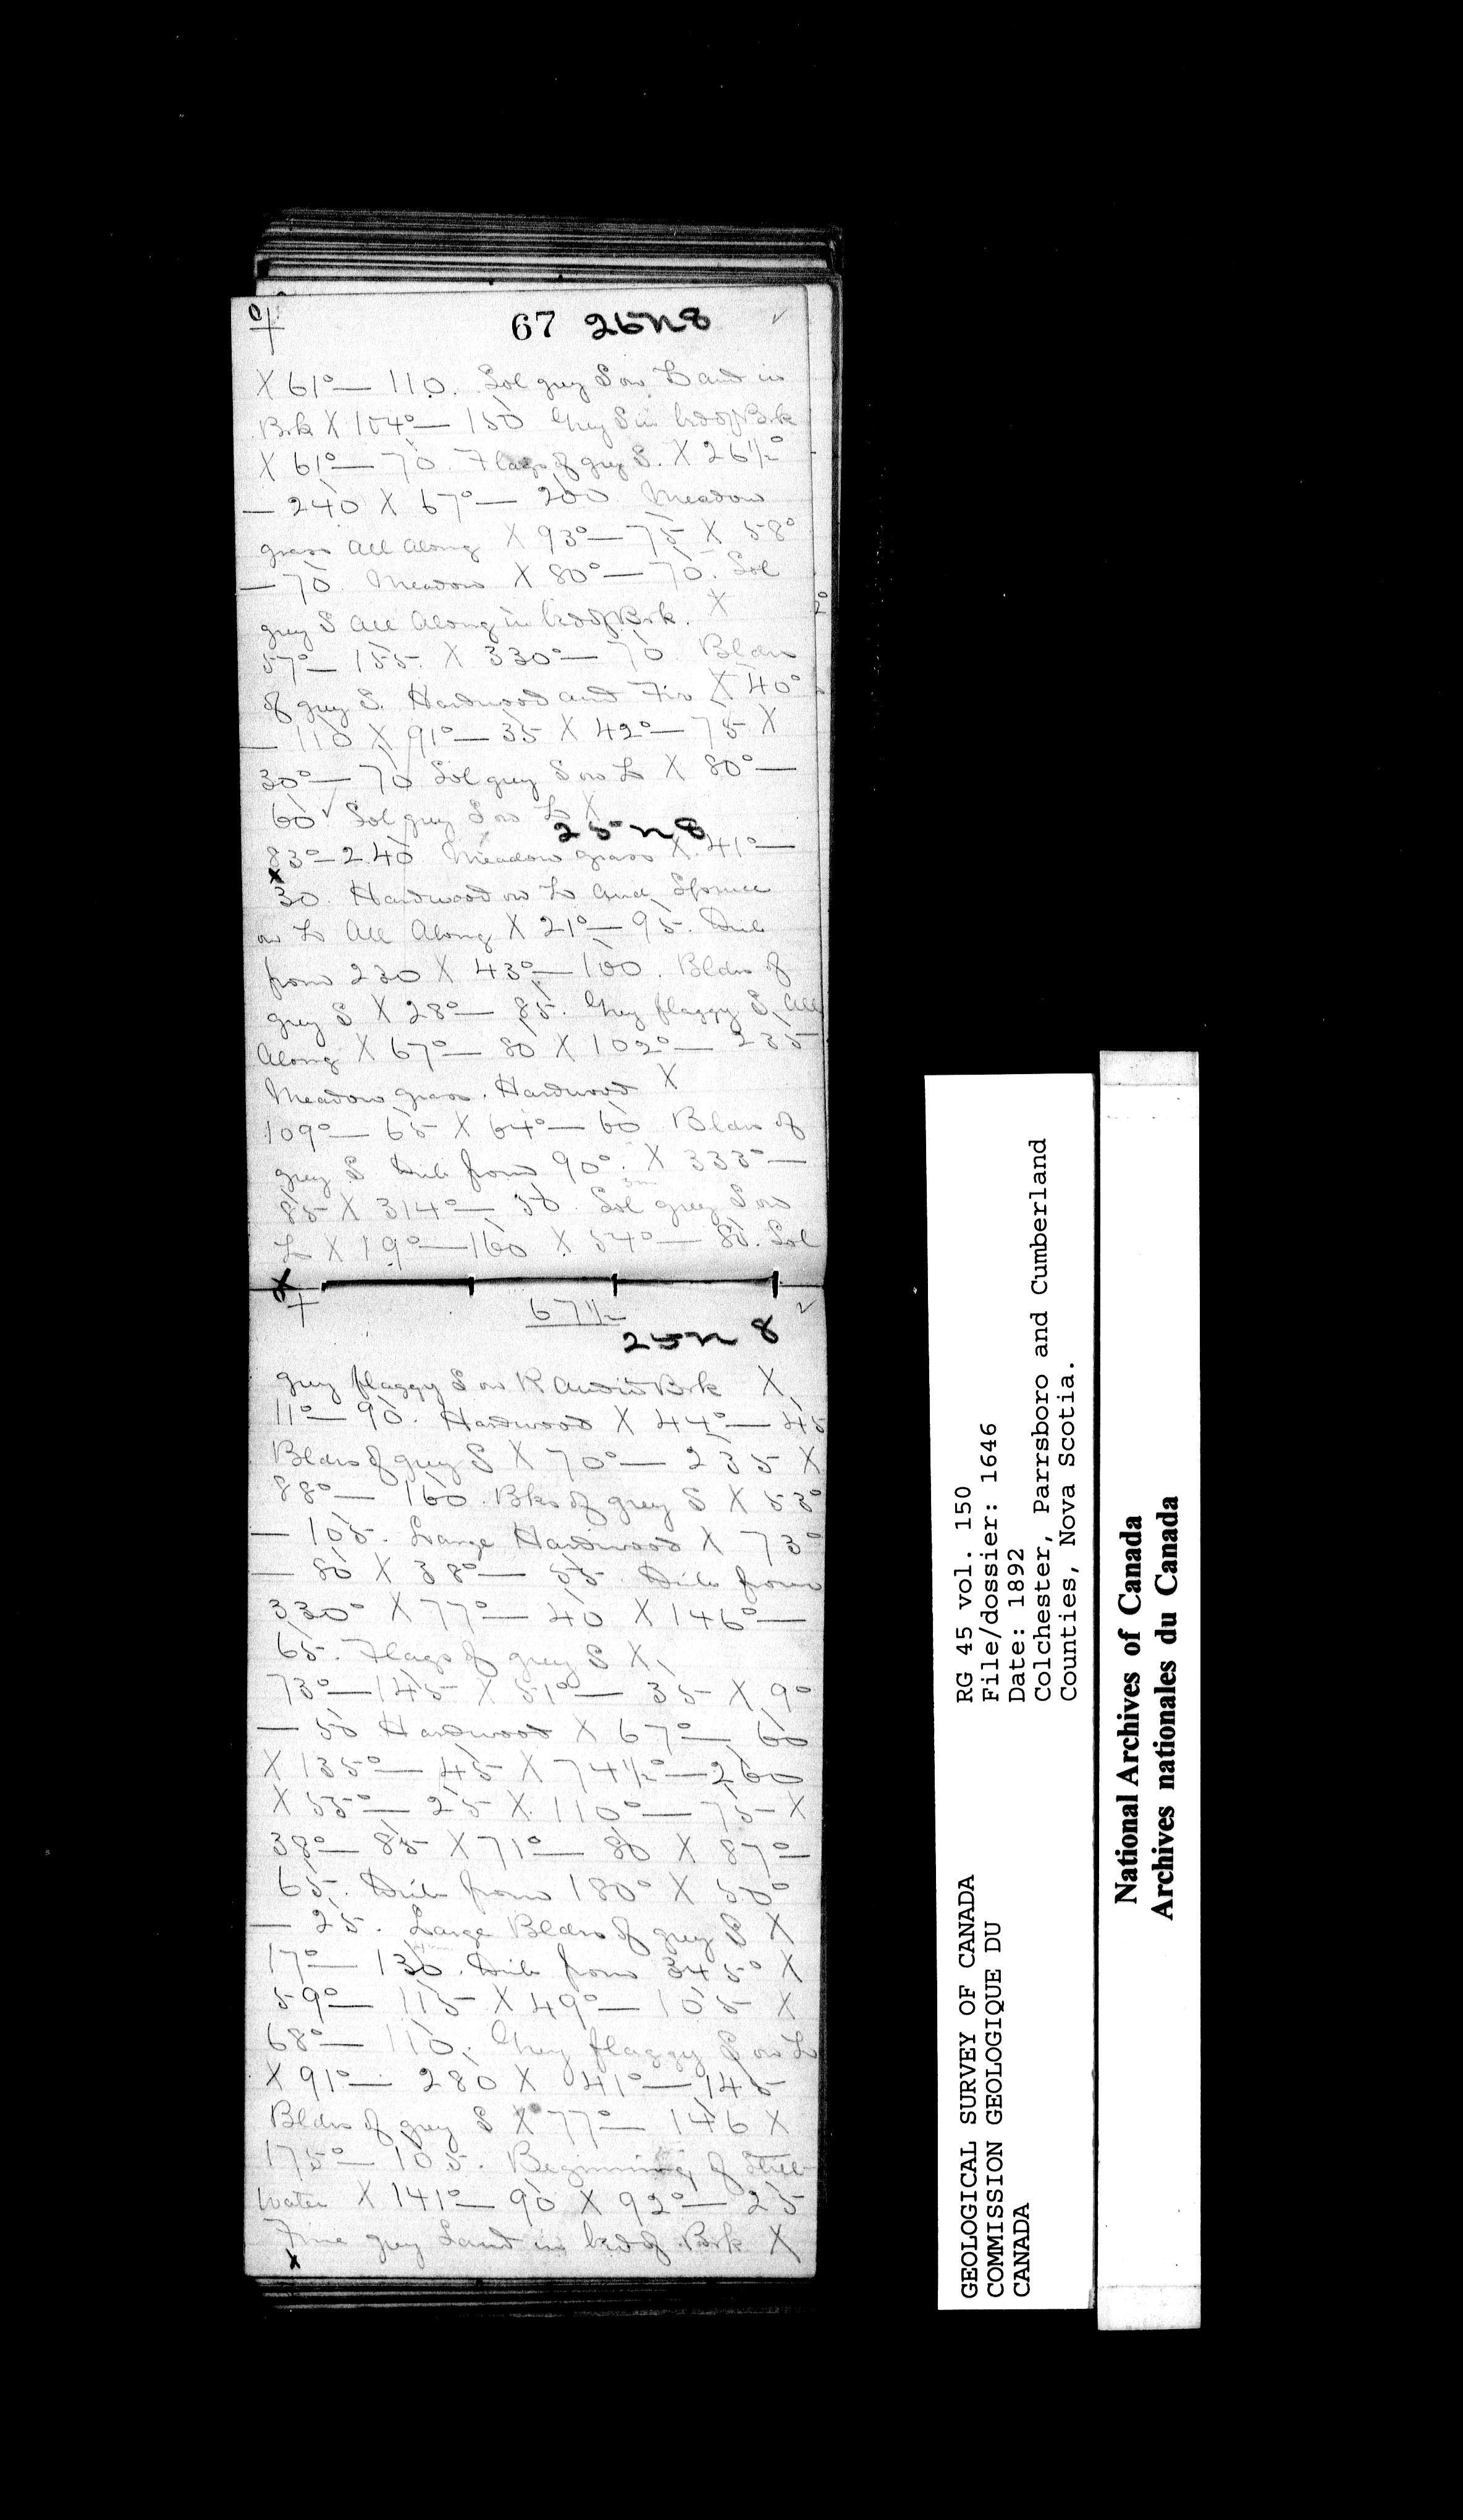 67 25n8
X 61° — 110. Sol grey S on L and in
Brk X 104° — 150 Grey S in bed of Brk
X 61° — 70. Flags of grey S. X 26½°
— 240 X 67° — 200 Meadow
grass All Along X 93° — 75 X 58°
— 70 Meadow X 80° — 70. Sol
grey S All Along in bed of Brk. X
57° — 155. X 330° — 70 Bldrs
of grey S. Hardwood and Fir X 40°
— 110 X 91° — 35 X 42° — 75 X
30° — 70 Sol grey S on L X 80° —
60 Sol grey S on L X
25n8
83° — 240 Meadow grass X 41° —
30. Hardwood on L and Spruce
on L All Along X 21° — 95.
from 230 X 43° — 100. Bldrs of
grey S X 28° — 85. Grey flaggy S, All
Along X 67° — 80 X 102° — 235
Meadow grass. Hardwood X
109° — 65 X 64° — 60 Bldrs of
grey S from 90°. X 333° —
85 X 314° — 50 Sol grey S on
L X 19° — 160 X 54° — 80. Sol
67½
25n8
grey flaggy S on R and in Brk X
11° — 90. Hardwood X 44° — 45
Bldrs of grey S X 70° — 235 X
88° — 160. Bks of grey S X 53°
— 105. Large Hardwood X 73°
— 80 X 38° — 55 from
330° X 77° — 40 X 146° —
65. Flags of grey S X
73° — 145 X 51° — 35 X 9°
— 50 Hardwood X 67° — 60
X 135° — 45 X 74½° — 260
X 55° — 25 X 110° — 75 X
38° — 85 X 71° — 80 X 87° —
65. from 180° X 50°
— 25. Large Bldrs of grey S X
17° — 130. from 345° X
59° — 115 X 49° — 105 X
68° — 110. Grey flaggy S on L
X 91° — 280 X 41° — 145
Bldrs of grey S X 77° — 146 X
175° — 105. Beginning of Still
water X 141° — 90 X 92° — 25
Fine grey Sand in bed of Brk X
GEOLOGICAL SURVEY OF CANADA
COMMISSION GEOLOGIQUE DU
CANADA
RG 45 vol. 150
File/dossier: 1646
Date: 1892
Colchester, Parrsboro and Cumberland
Counties, Nova Scotia.
National Archives of Canada
Archives nationales du Canada